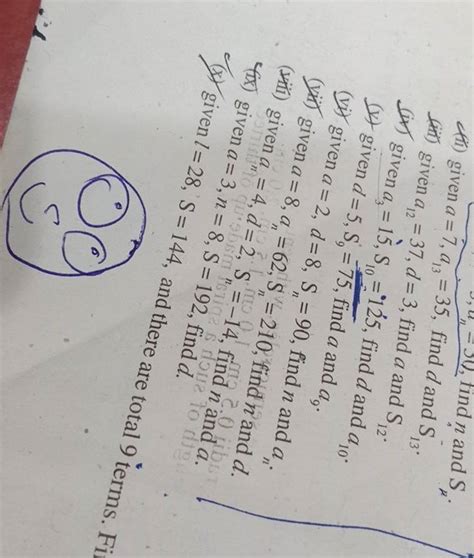 = 50, find n and Sₙ.
(ii) given a = 7, a₁₃ = 35, find d and S₁₃.
(iii) given a₁₂ = 37, d = 3, find a and S₁₂.
(iv) given a₃ = 15, S₁₀ = 125, find d and a₁₀.
(v) given d = 5, S₉ = 75, find a and a₉.
(vi) given a = 2, d = 8, Sₙ = 90, find n and aₙ.
(vii) given a = 8, aₙ = 62, Sₙ = 210, find n and d.
(viii) given aₙ = 4, d = 2, Sₙ = −14, find n and a.
(ix) given a = 3, n = 8, S = 192, find d.
(x) given l = 28, S = 144, and there are total 9 terms. Fi